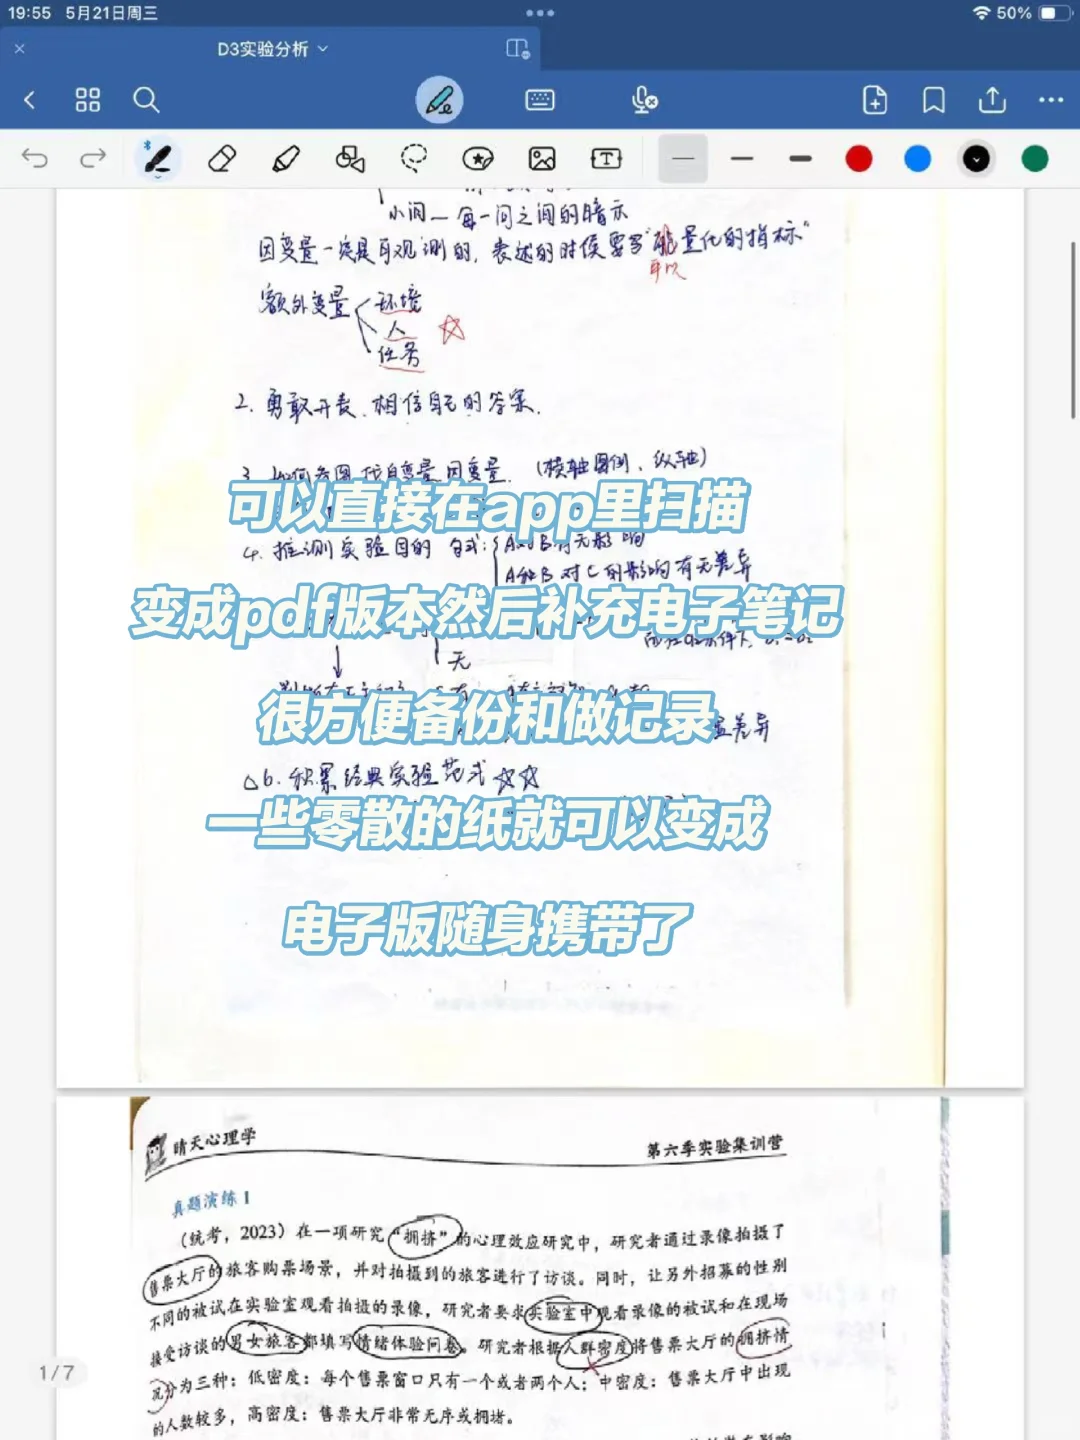 19:55 5月21日周三
50%
D3实验分析
小问—每一问之间的暗示
因变量一定是可观测的,表述的时候要写"能量化的指标"
可以
额外变量
环境
人
任务
2. 勇敢开麦、相信自己的答案.
3. 如何看图找自变量、因变量. (横轴图例、纵轴)
可以直接在app里扫描
4. 推测实验目的 句式: A对B有无影响
A和B对C的影响有无差异
变成pdf版本然后补充电子笔记
无
很方便备份和做记录
差异
△6. 积累经典实验范式 ☆☆
一些零散的纸就可以变成
电子版随身携带了
晴天心理学
第六季实验集训营
真题演练 1
(统考,2023)在一项研究“拥挤”的心理效应研究中,研究者通过录像拍摄了
售票大厅的旅客购票场景,并对拍摄到的旅客进行了访谈。同时,让另外招募的性别
不同的被试在实验室观看拍摄的录像,研究者要求实验室中观看录像的被试和在现场
接受访谈的男女旅客都填写情绪体验问卷。研究者根据人群密度将售票大厅的拥挤情
况分为三种:低密度:每个售票窗口只有一个或者两个人;中密度:售票大厅中出现
的人数较多,高密度:售票大厅非常无序或拥堵。
1/7